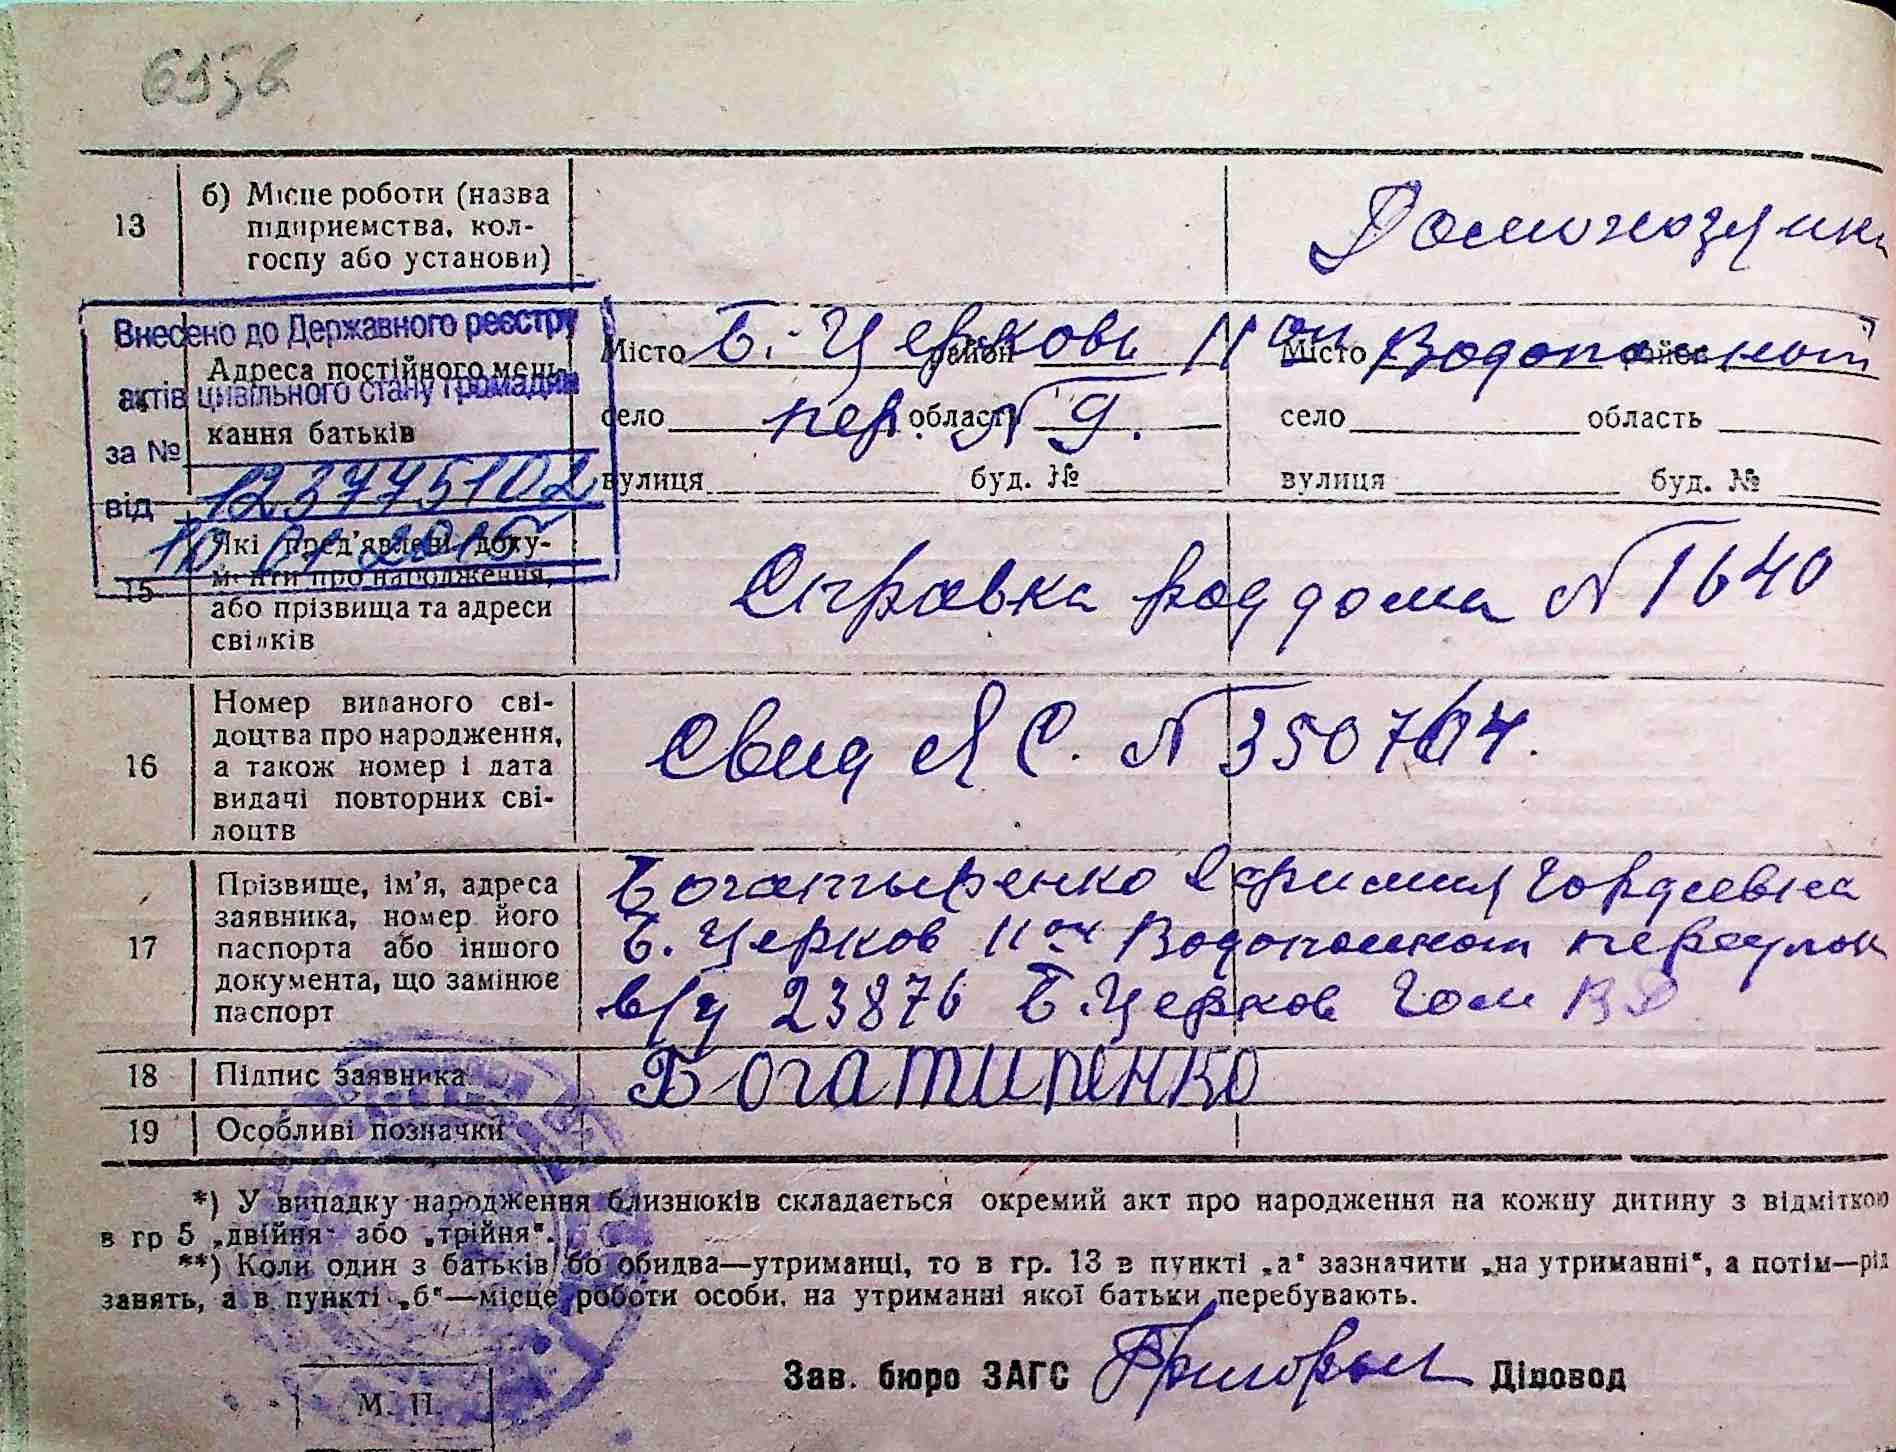 13
б) Місце роботи (назва
підприємства, кол-
госпу або установи)
Домохозяйка
Внесено до Державного реєстру
актів цивільного стану громадян
за № 123775102
від 10 01 2015
Адреса постійного меш-
кання батьків
Місто Б. Церковь район
село область
вулиця буд. №
Місто район
село область
вулиця буд. №
Б. Церковь II ой Водопойный
пер. № 9.
15
Які пред'явлені доку-
менти про народження,
або прізвища та адреси
свідків
Справка роддома № 1640
16
Номер виданого сві-
доцтва про народження,
а також номер і дата
видачі повторних сві-
доцтв
Свид ЯС. №
17
Прізвище, ім'я, адреса
заявника, номер його
паспорта або іншого
документа, що замінює
паспорт
Богатыренко Ефимия Гордеевна
Б. Церков II ой Водопойный переулок
в/ч 23876 Б. Церков Гом
18
Підпис заявника
Богатиренко
19
Особливі позначки
*) У випадку народження близнюків складається окремий акт про народження на кожну дитину з відміткою
в гр 5 „двійня“ або „трійня“.
**) Коли один з батьків бо обидва—утриманці, то в гр. 13 в пункті „а“ зазначити „на утриманні“, а потім—рід
занять, а в пункті „б“—місце роботи особи, на утриманні якої батьки перебувають.
Зав. бюро ЗАГС Діловод
М. П.